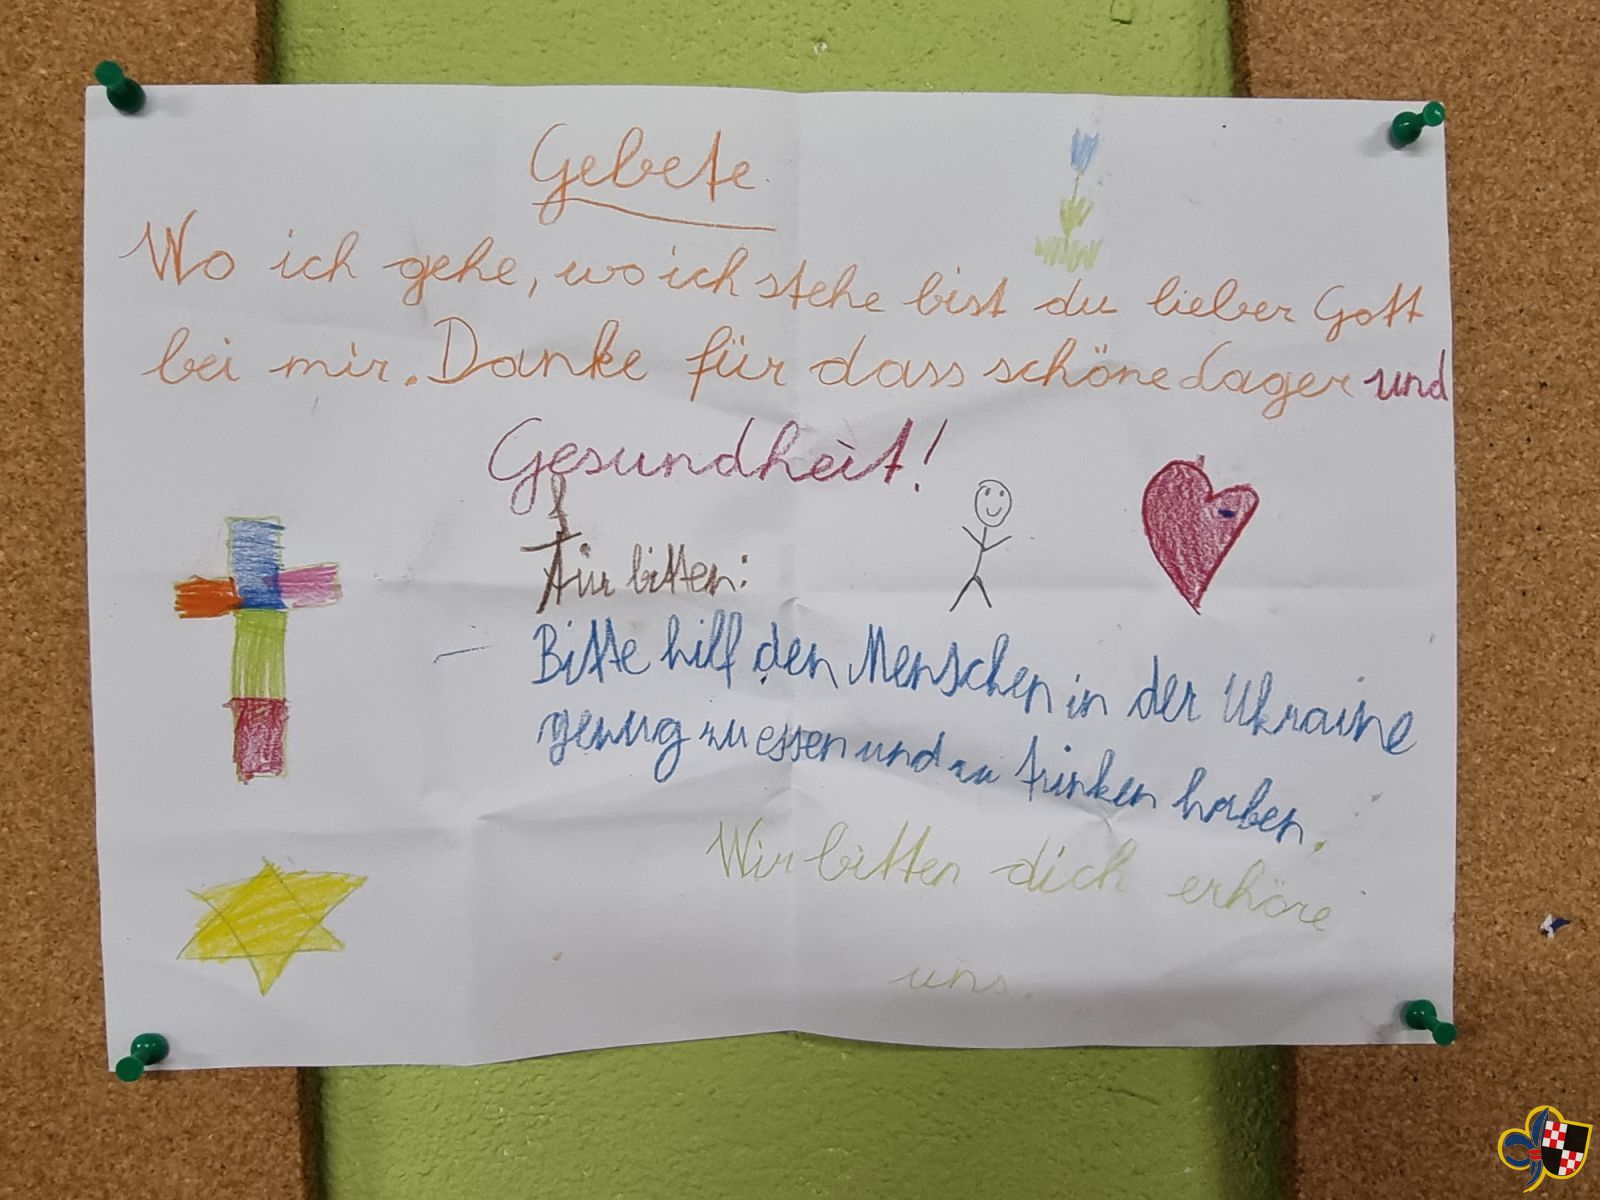 Gebete
Wo ich gehe, wo ich stehe bist du lieber Gott
bei mir. Danke für dass schöne Lager und
Gesundheit!
Fürbitten:
Bitte hilf den Menschen in der Ukraine
genug zu essen und zu trinken haben.
Wir bitten dich erhöre
uns.